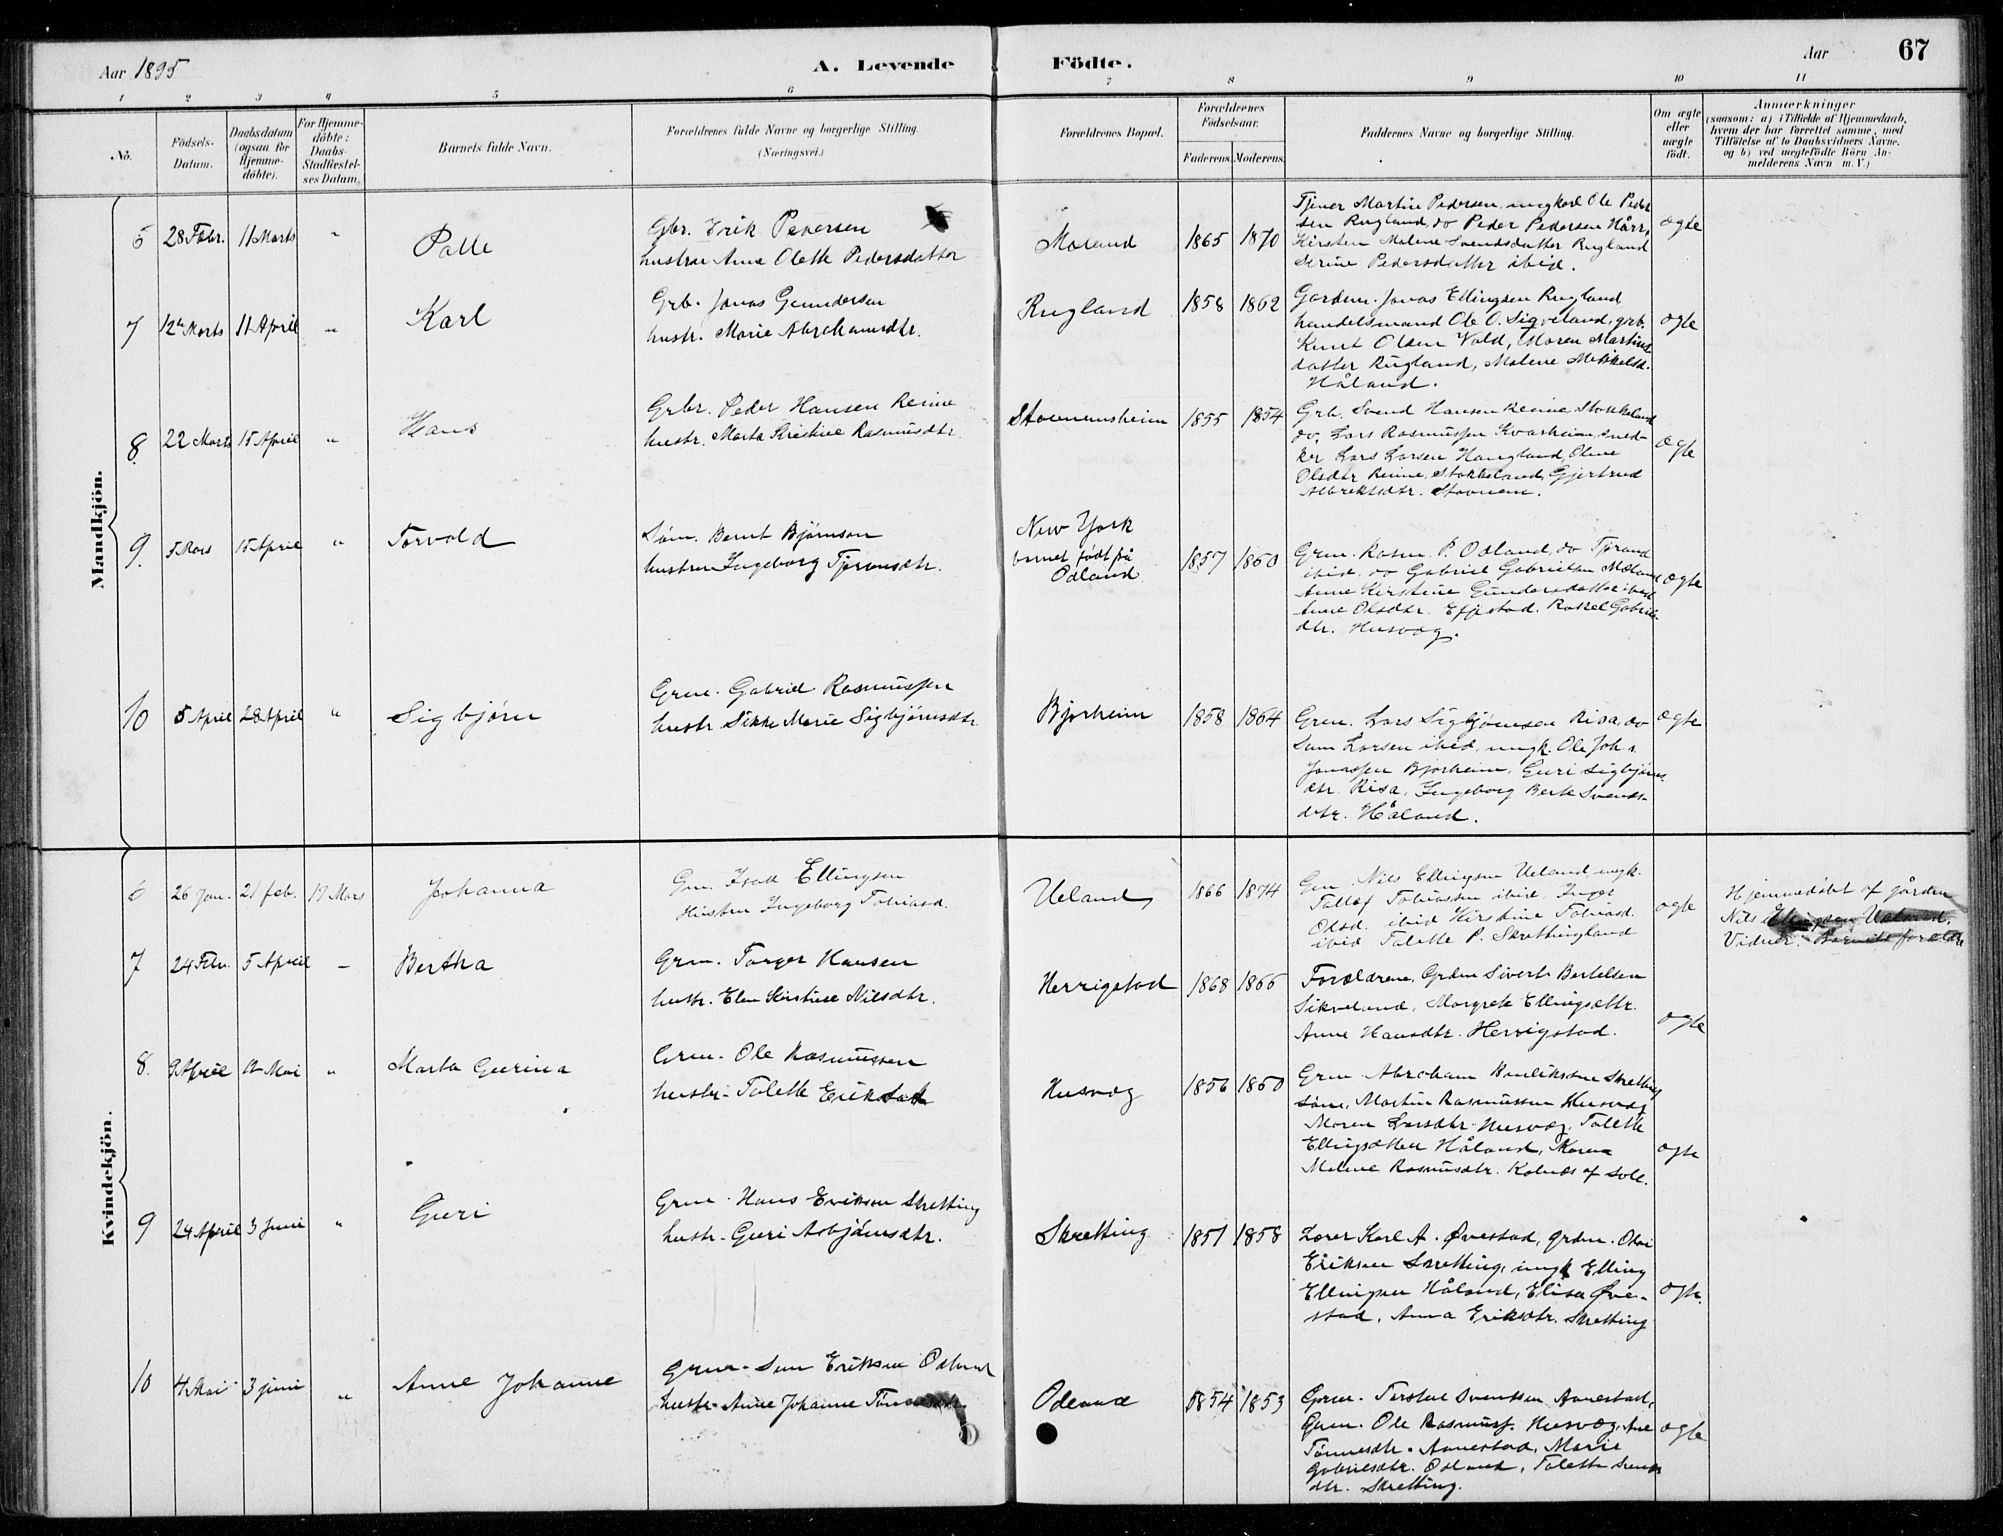 Aar 1895
A. Levende
Födte.
Aar
67
1 2 3 4 5 6 7 8 9 10 11
No.
Födsels-
Datum.
Daabsdatum
(ogsaa for
Hjemme-
döbte).
For Hjemme-
döbte:
Daabs-
Stadfæstel-
ses Datum.
Barnets fulde Navn.
Forældrenes fulde Navne og borgerlige Stilling.
(Næringsvei.)
Forældrenes Bopæl.
Forældrenes
Födselsaar.
Faderens. Moderens.
Faddernes Navne og borgerlige Stilling.
Om ægte
eller
uægte
födt.
Anmærkninger
(saasom: a) i Tilfælde af Hjemmedaab,
hvem der har forrettet samme, med
Tilföielse af to Daabsvidners Navne.
og b) ved uægtefödte Börn An-
melderens Navn m. V.)
Mandkjön.
6 28 Febr. 11 Marts " Palle
Gbr. Erik Pedersen
hustru Anne Olette Pedersdatter
Moland 1865 1870
Tjener Martin Pedersen, ungkarl Ole Peder
sen Rugland, do Peder Pedersen Hårr,
Kirsten Malene Svendsdatter Rugland
Serine Pedersdatter ibid.
ægte
7 12te Marts 11 April " Karl
Grb. Jonas Gundersen
hustr. Marie Abrahamsdtr.
Rugland 1858 1862
Gardm. Jonas Ellingsen Rugland
handelsmand Ole O. Sigveland, grb.
Knut Olsen Vold, Maren Martins
datter Rugland, Malene Mikkelsd.
Håland.
ægte
8. 22 Marts 15 April " Hans
Grbr. Peder Hansen Reime
hustr. Marta Kristine Rasmusdtr.
Stavnemsheim 1855 1854
Grb. Svend Hansen Reime, Stokkeland
do. Lars Rasmussen Kvarheim, sned-
ker Lars Larsen Haugland, Oline
Olsdtr Reime, Stokkeland, Gjertrud
Albrektsdtr. Stavnem.
ægte
9. 5 Mars 15 April " Torvald
Søm. Bernt Bjørnson
hustru Ingeborg Tjeransdtr.
New York
barnet født på
Ødland.
1857 1860
Grm. Rasm. P. Ødland, do Tjerand
ibid. do Gabriel Gabrielsen Mæland
Anne Kirstine Gundersdatter ibid
Anne Olsdtr. Efjestad. Rakel Gabriels-
dtr. Husvæg.
ægte
10 5 April 28 April " Sigbjørn
Grm. Gabriel Rasmussen
hustr. Sikke Marie Sigbjørnsdtr
Bjorheim 1858 1864
Grm. Lars Sigbjørnsen Risa, do
Sven Larsen ibid, ungk. Ole Joh s.
Jonassen Bjorheim, Guri Sigbjørns-
dtr. Risa, Ingeborg Berte Svends-
dtr. Håland.
ægte
Kvindekjön.
6 26 Jan. 21 feb. 17 Mars Johanna
Gm. Isak Ellingsen
Hustru Ingeborg Tobiasd.
Ueland 1866 1874
Gm. Nils Ellingsen Ueland ungk.
Tollef Tobiassen ibid, Inger
Olsd. ibid Kirstine Tobiasd.
ibid Talette P. Skrettingland
ægte
Hjemmedøbt af gårdm
Nils Ellingsen Ueland.
Vidner: Barnets forældre
7 24 Febr. 5 April " Bertha
Grm. Torger Hansen
hustr. Elen Kirstine Nilsdtr.
Herrigstad 1868 1866
Forældrene, Grdm Sivert Bertelsen
Sikveland, Margrete Ellingsdtr.
Anne Hansdtr. Herrigstad.
ægte
8. 9 April 12 Mai " Marta Gurina
Grm. Ole Rasmussen
hustr. Talette Eriksdtr
Husvæg 1856 1860
Grm Abraham Bendiksen Skretting
Søm, Martin Rasmussen Husvæg
Maren Larsdtr. Husvæg, Talette
Ellingsdtter Håland, Karen
Malene Rasmusdtr. Kolnes af Sole.
ægte
9 24 April 3 Juni " Guri
Grm. Hans Eriksen Skretting
hustr. Guri Asbjørnsdtr.
Skretting 1851 1858
Lærer Karl A. Øvestad, grdm. Olai
Eriksen Skretting, ungk Elling
Ellingsen Håland, Elisa Øve-
stad, Anna Eriksdtr. Skretting
ægte.
10 4 Mai 3 juni " Anne Johanne
Grm. Sven Eriksen Ødland
hustr. Anne Johanne Tønnesdtr
Ødland 1854 1853
Grm. Torsten Svensen Aanestad,
Grm. Ole Rasmuss. Husvæg, Ane
Tønnesdtr. Aanestad, Marie
Gabrielsdtr. Ødland, Talette Svends
dtr. Skretting.
ægte